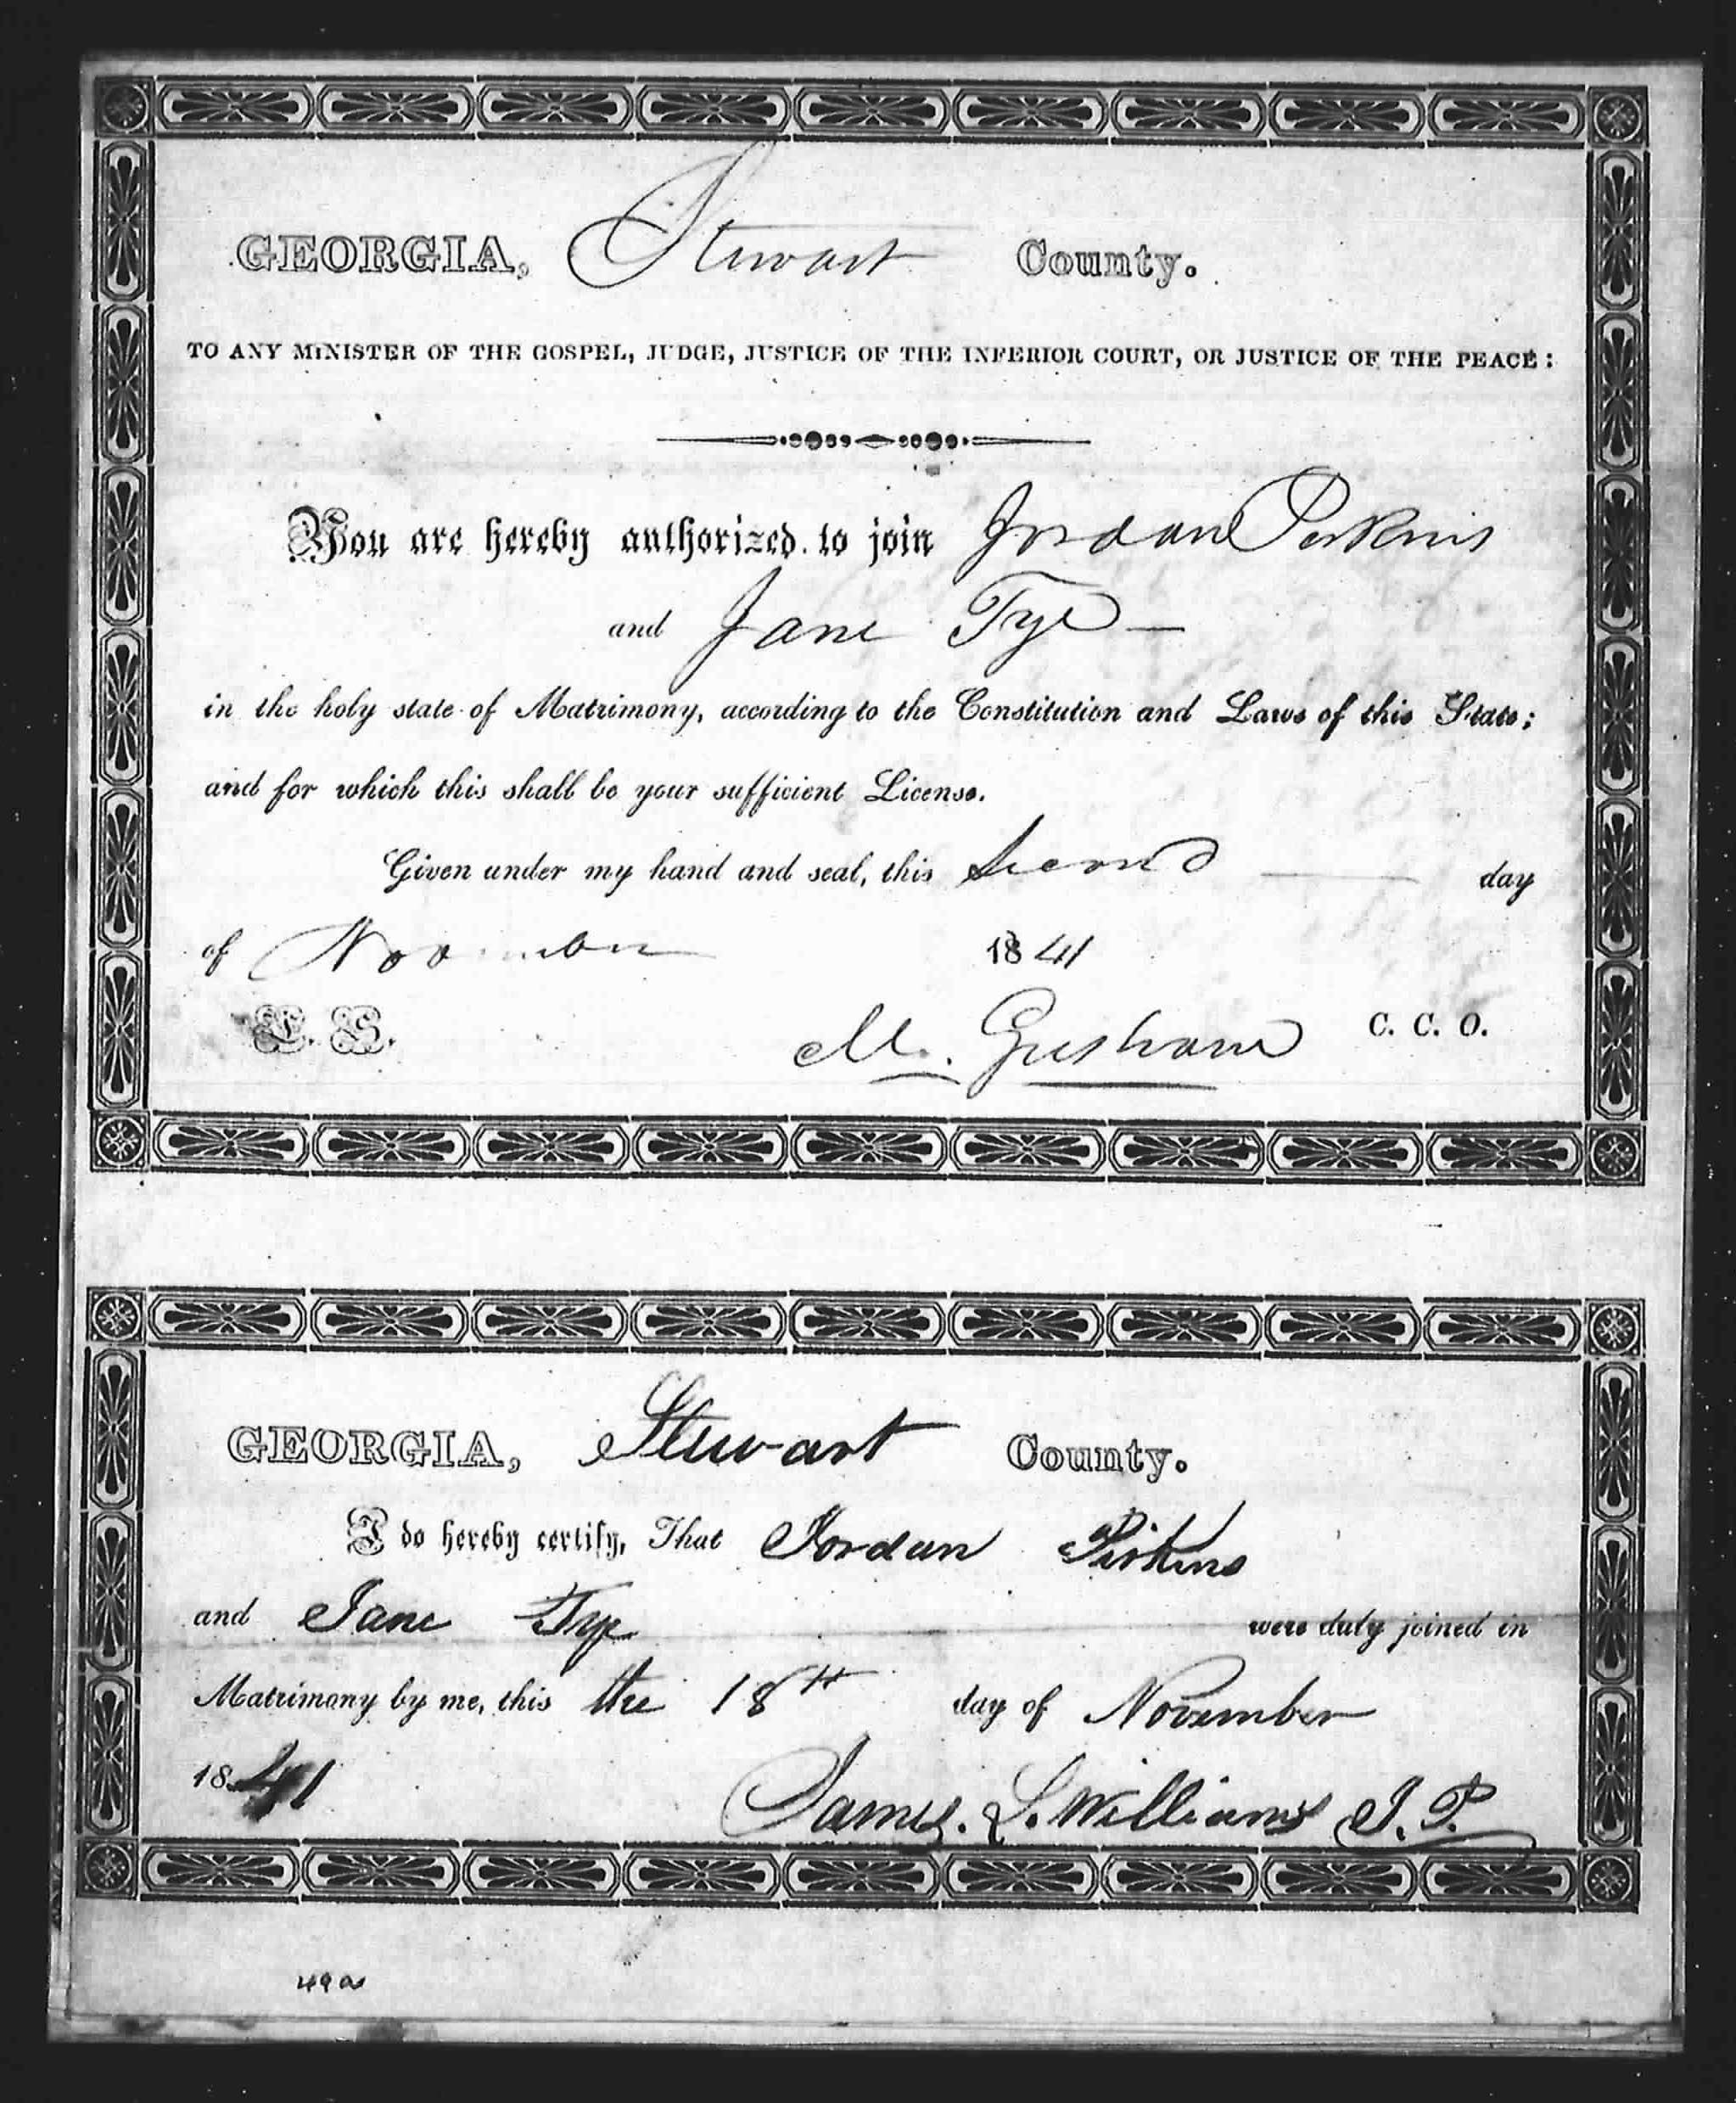 GEORGIA, Stewart County.
TO ANY MINISTER OF THE GOSPEL, JUDGE, JUSTICE OF THE INFERIOR COURT, OR JUSTICE OF THE PEACE:
You are hereby authorized to join Jordan Perkins
and Jane Tye
in the holy state of Matrimony, according to the Constitution and Laws of this State;
and for which this shall be your sufficient License.
Given under my hand and seal, this Second day
of November 1841
L. S. M. Gresham C. C. O.
GEORGIA, Stewart County.
I do hereby certify, That Jordan Pirkins
and Jane Tye were duly joined in
Matrimony by me, this the 18th day of November
1841 James. L. Williams J. P.
49a